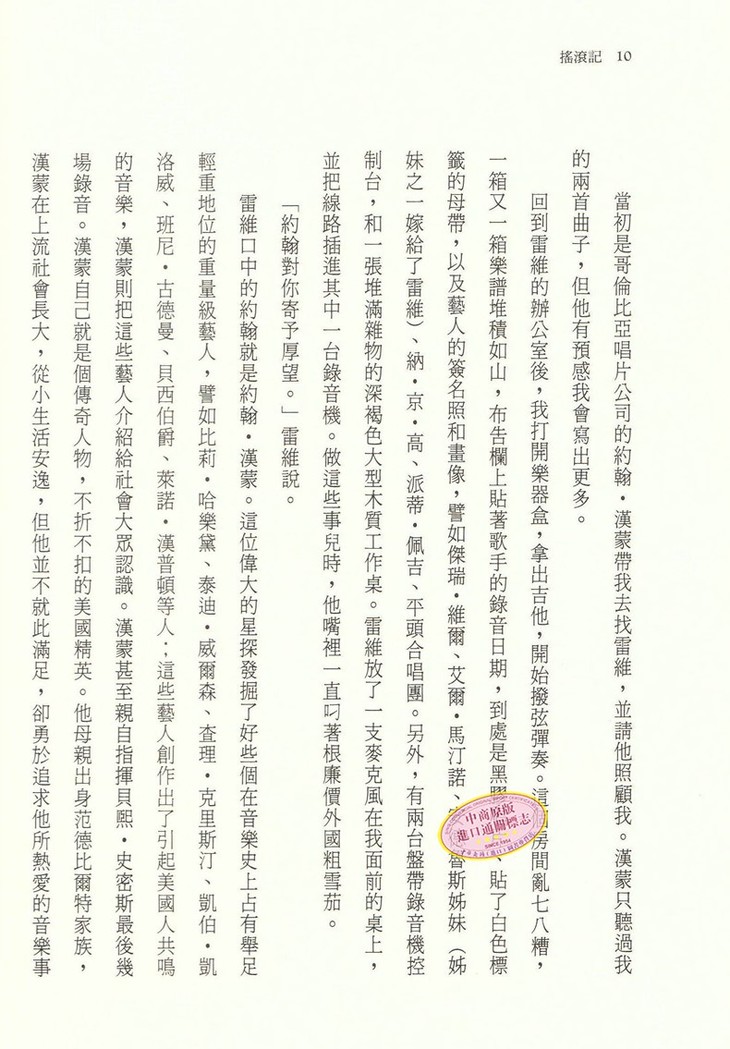 搖滾記 10
當初是哥倫比亞唱片公司的約翰・漢蒙帶我去找雷維，並請他照顧我。漢蒙只聽過我
的兩首曲子，但他有預感我會寫出更多。
回到雷維的辦公室後，我打開樂器盒，拿出吉他，開始撥弦彈奏。這 房間亂七八糟，
一箱又一箱樂譜堆積如山，布告欄上貼著歌手的錄音日期，到處是黑 、貼了白色標
籤的母帶，以及藝人的簽名照和畫像，譬如傑瑞・維爾、艾爾・馬汀諾、 魯斯姊妹（姊
妹之一嫁給了雷維）、納・京・高、派蒂・佩吉、平頭合唱團。另外，有兩台盤帶錄音機控
制台，和一張堆滿雜物的深褐色大型木質工作桌。雷維放了一支麥克風在我面前的桌上，
並把線路插進其中一台錄音機。做這些事兒時，他嘴裡一直叼著根廉價外國粗雪茄。
「約翰對你寄予厚望。」雷維說。
雷維口中的約翰就是約翰・漢蒙。這位偉大的星探發掘了好些個在音樂史上占有舉足
輕重地位的重量級藝人，譬如比莉・哈樂黛、泰迪・威爾森、查理・克里斯汀、凱伯・凱
洛威、班尼・古德曼、貝西伯爵、萊諾・漢普頓等人；這些藝人創作出了引起美國人共鳴
的音樂，漢蒙則把這些藝人介紹給社會大眾認識。漢蒙甚至親自指揮貝熙・史密斯最後幾
場錄音。漢蒙自己就是個傳奇人物，不折不扣的美國精英。他母親出身范德比爾特家族，
漢蒙在上流社會長大，從小生活安逸，但他並不就此滿足，卻勇於追求他所熱愛的音樂事
中商原版
進口通關標志
SINCE 1954